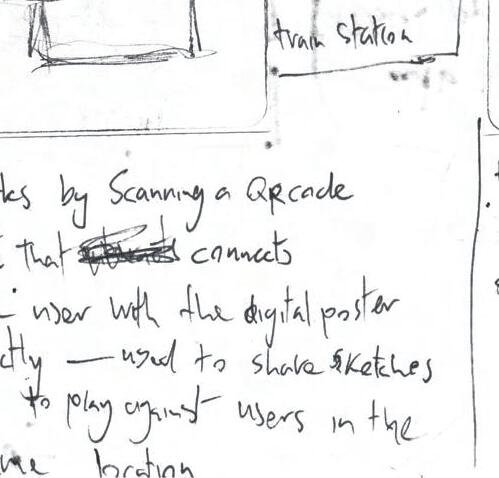 train station
ks by Scanning a QRcode
that connects
user with the digital poster
ctly — used to share sketches
to play against users in the
me location